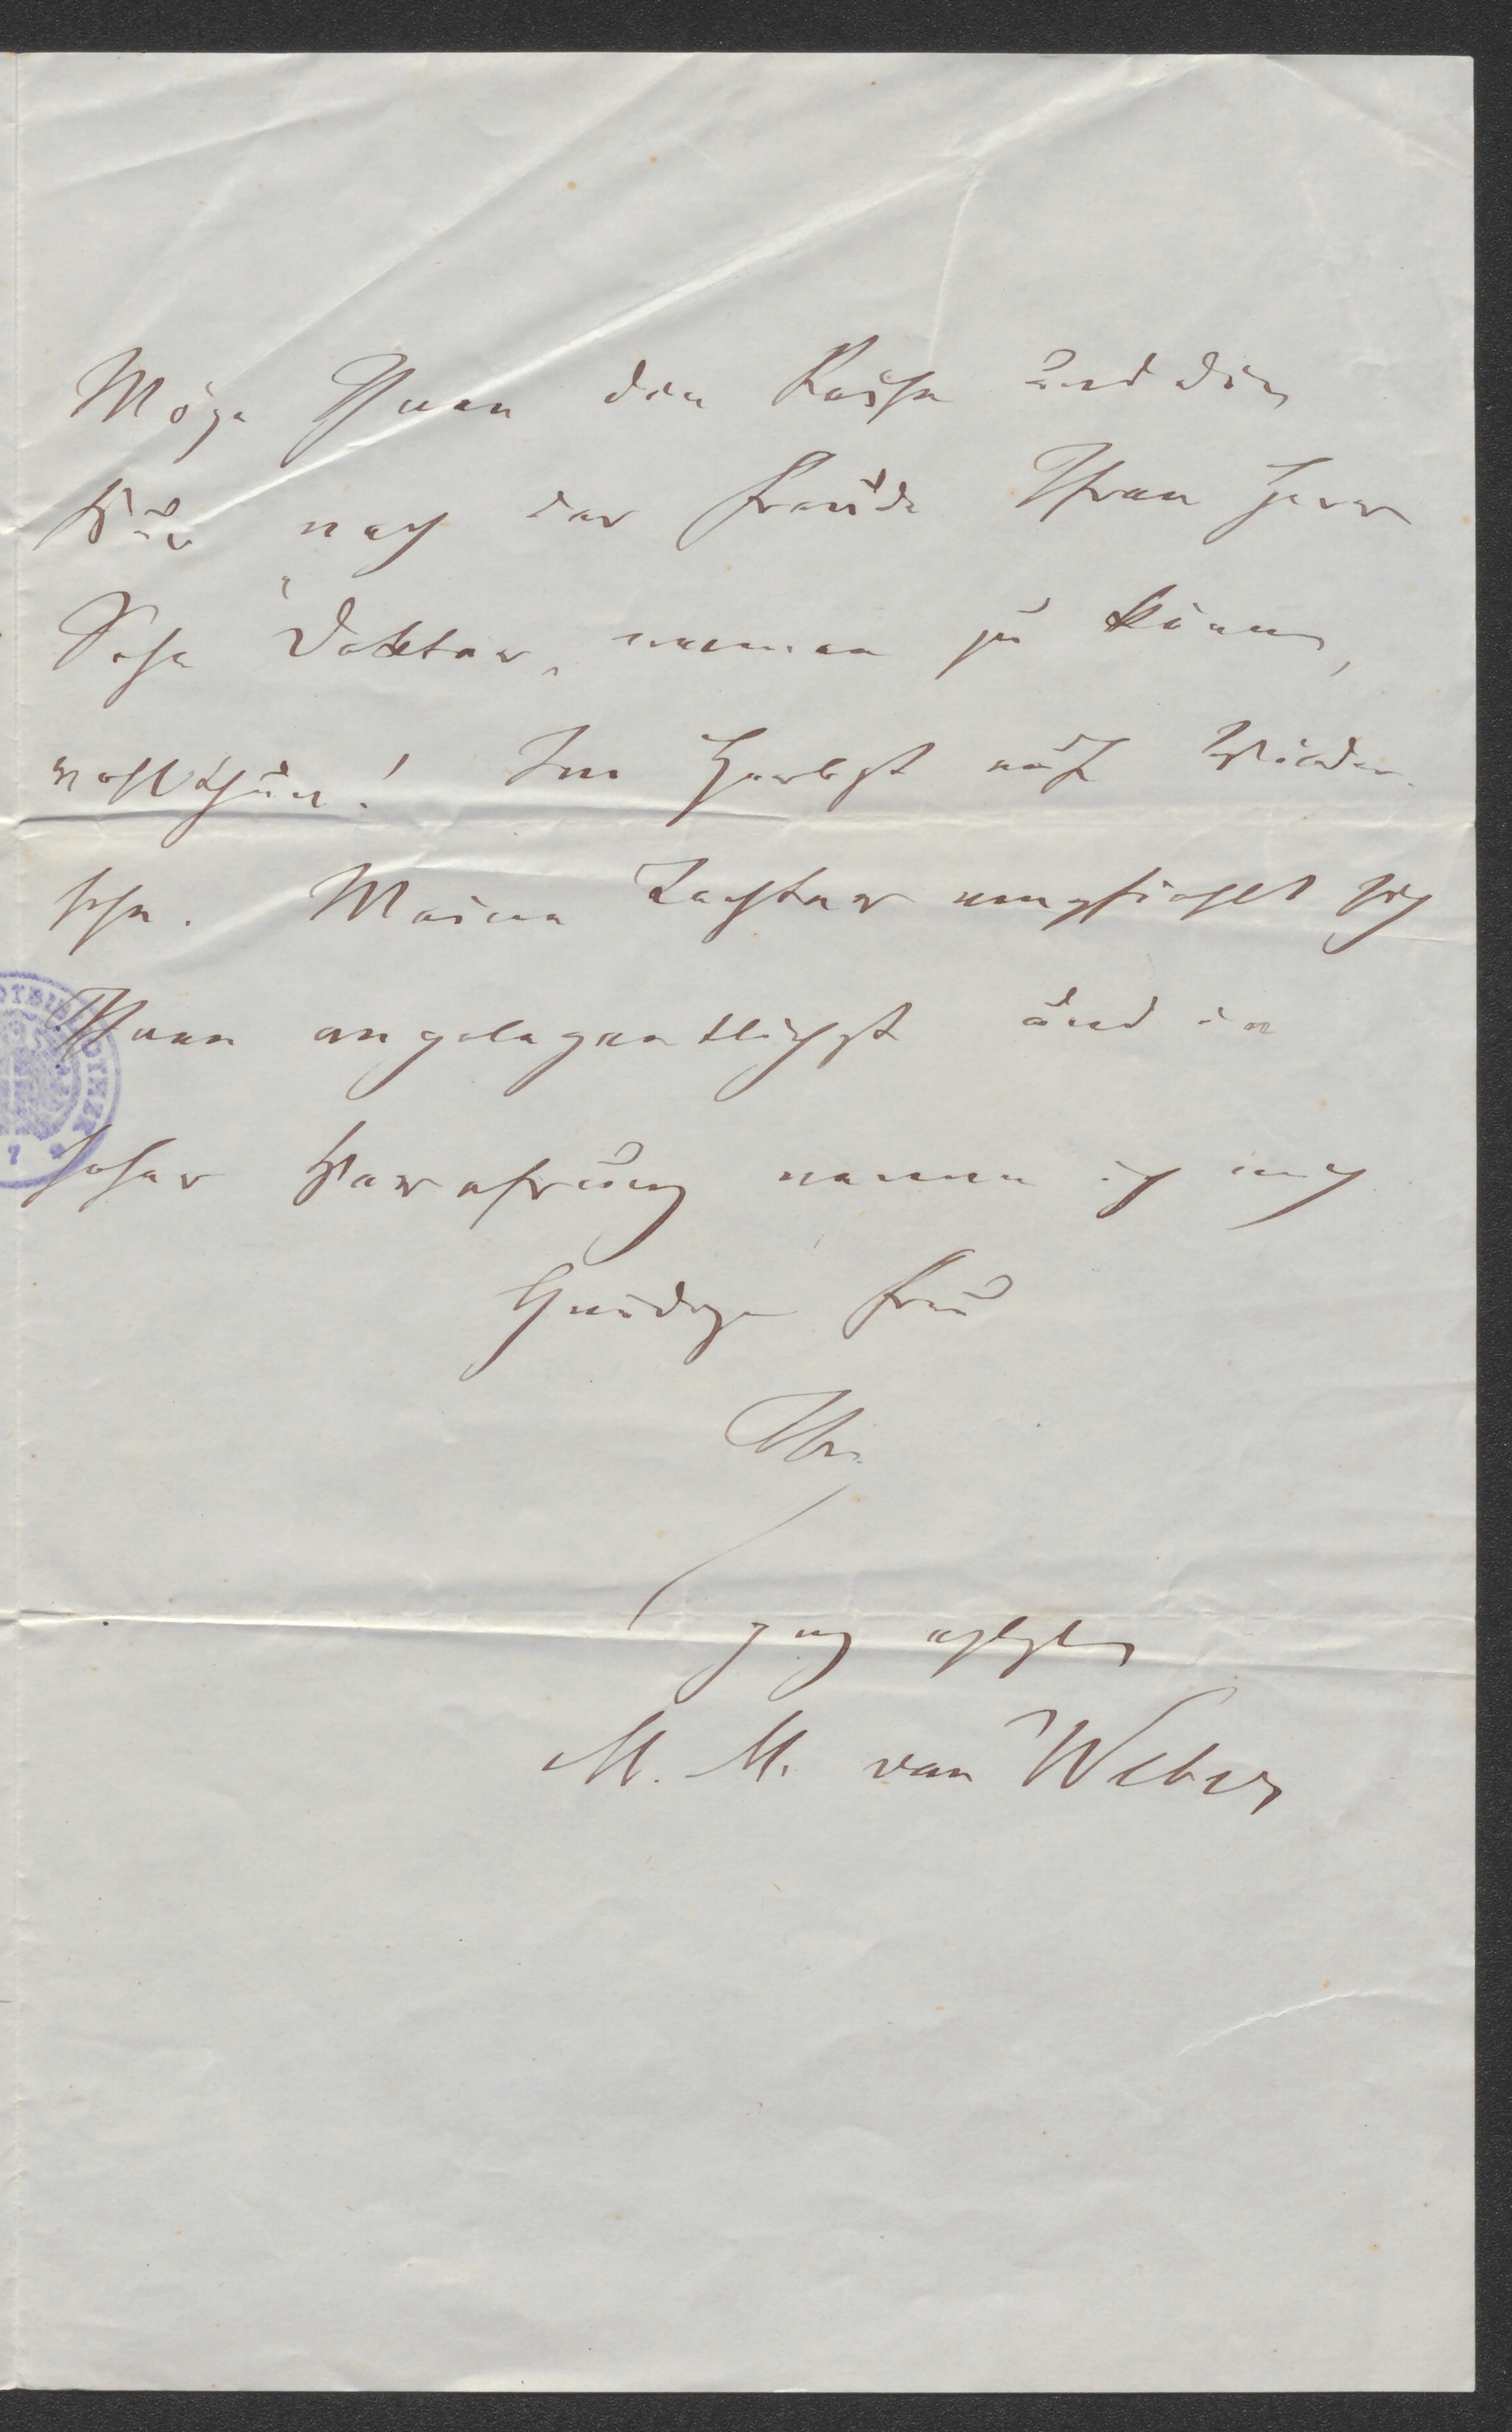 Möge Ihnen die Reise und die
Kur nach der Freude Ihren Herrn
Sohn "Doktor" nennen zu können,
wohlthun! Im Herbst auf Wieder-
sehn. Meine Tochter empfiehlt sich
Ihnen angelegentlichst und in
hoher Verehrung nenne ich mich
Gnädige Frau
Ihr
ganz erg
M. M. von Weber